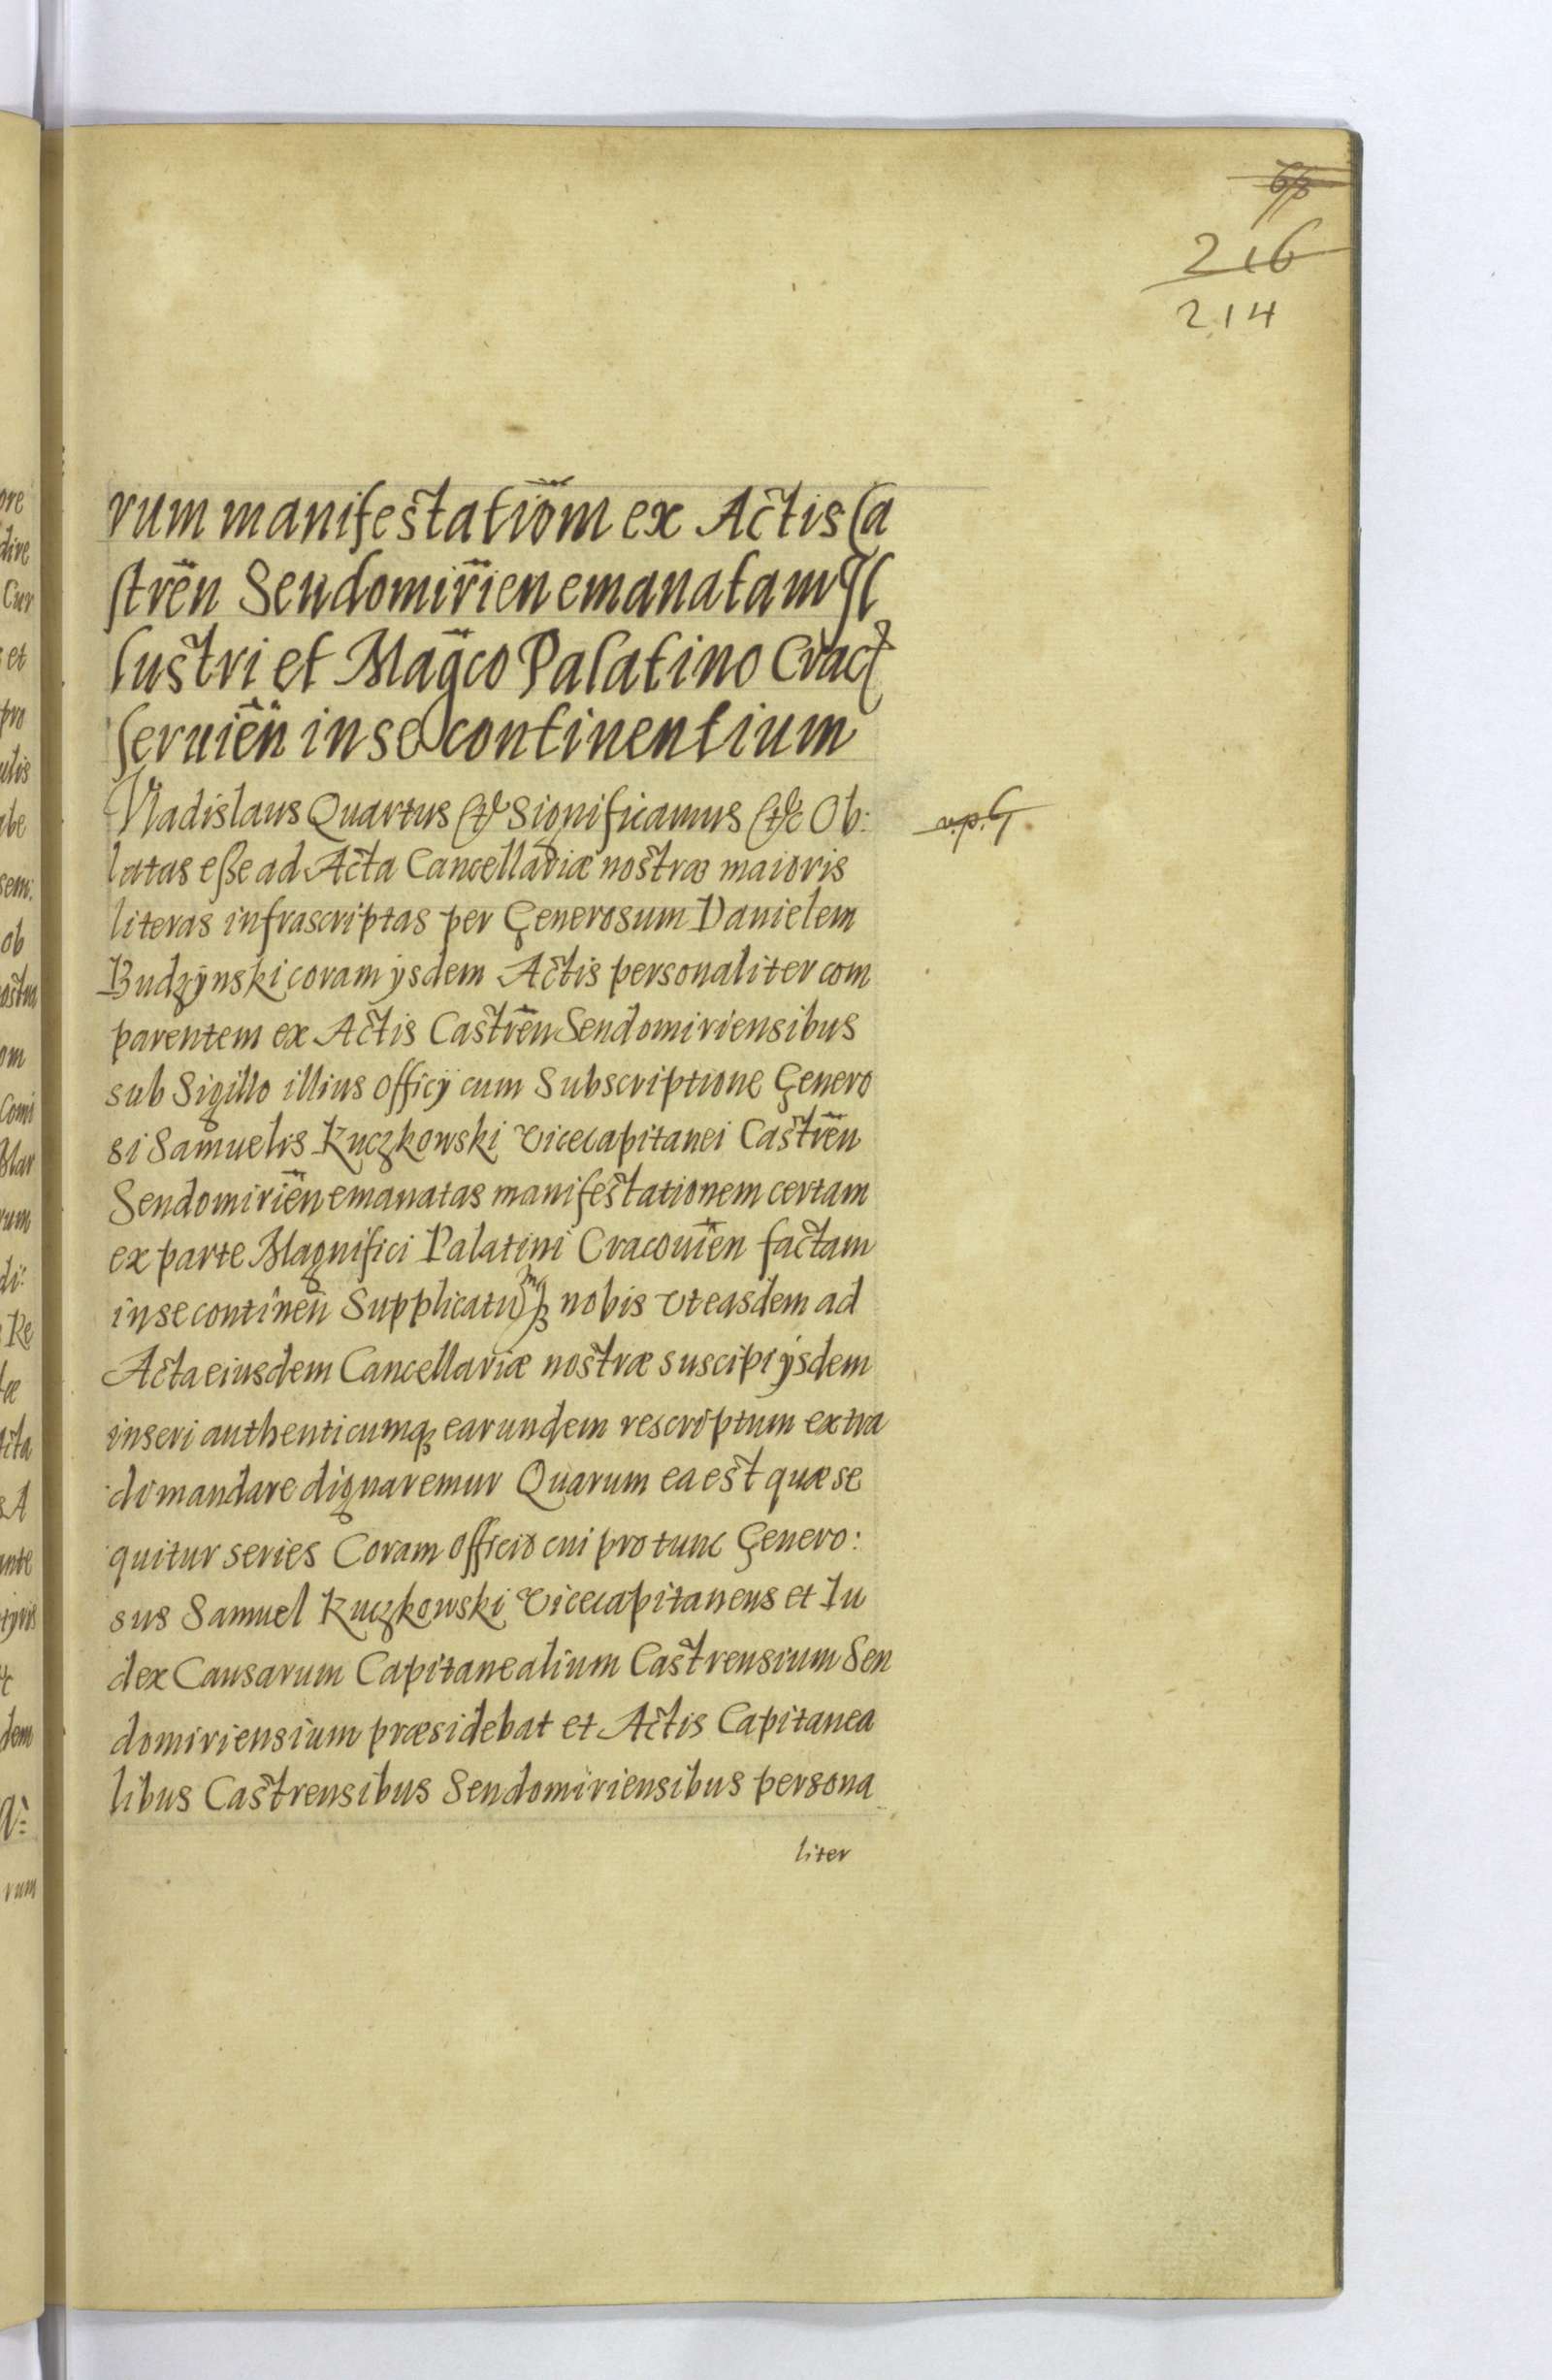 216
214
rum manifestatiom̃ ex Actis Ca
strẽn Sendomirĩen emanatam Il
lustri et Mag̃co Palatino Crac
seruiẽn in se continentium
Vladislaus Quartus &c Significamus &c Ob:
latas esse ad Acta Cancellariæ nostræ maioris
literas infrascriptas per Generosum Danielem
Budzÿnski coram ÿsdem Actis personaliter com
parentem ex Actis Castrẽn Sendomiriensibus
sub Sigillo illius officÿ cum Subscriptione Genero
si Samuelis Kuczkowski Vicecapitanei Castrẽn
Sendomiriẽn emanatas manifestationem certam
ex parte Magnifici Palatini Cracouiẽn factam
in se continẽn Supplicatũ nobis vt easdem ad
Acta eiusdem Cancellariæ nostræ suscipi ÿsdem
inseri authenticumq; earundem rescriptum extra
di mandare dignaremur Quarum ea est quæ se
quitur series Coram officio cui pro tunc Genero:
sus Samuel Kuczkowski Vicecapitaneus et Iu
dex Causarum Capitanealium Castrensium Sen
domiriensium præsidebat et Actis Capitanea
libus Castrensibus Sendomiriensibus persona
liter